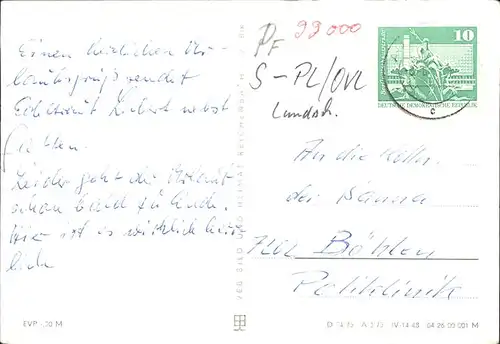 Einen herzlichen Ur-
laubsgruß sendet
Edeltraut Liebert nebst
Gatten.
Leider geht der Urlaub
schon bald zu Ende.
Hier ist es wirklich herr-
lich
PF
99000
S-PL/OVL
Landsch.
10
DEUTSCHE DEMOKRATISCHE REPUBLIK
C
An die
der Sauna
7202 Böhlen
Poliklinik
VEB BILD UND HEIMAT REICHENBACH
EVP -,20 M
IV-14-48 04 26 09 001 M